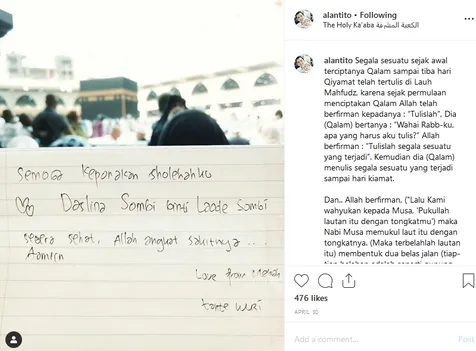 alantito • Following
The Holy Ka'aba الكعبة المشرفة
alantito Segala sesuatu sejak awal
terciptanya Qalam sampai tiba hari
Qiyamat telah tertulis di Lauh
Mahfudz, karena sejak permulaan
menciptakan Qalam Allah telah
berfirman kepadanya : "Tulislah", Dia
(Qalam) bertanya : "Wahai Rabb-ku,
apa yang harus aku tulis?" Allah
berfirman : "Tulislah segala sesuatu
yang terjadi". Kemudian dia (Qalam)
menulis segala sesuatu yang terjadi
sampai hari kiamat.
Dan.. Allah berfirman, ("Lalu Kami
wahyukan kepada Musa, 'Pukullah
lautan itu dengan tongkatmu') maka
Nabi Musa memukul laut itu dengan
tongkatnya. (Maka terbelahlah lautan
itu) membentuk dua belas jalan (tiap-
Semoga keponakan sholehahku
Daslina Sombi binti Laode Sombi
segera sehat, Allah angkat sakitnya ...
Aamiin
Love from Mekah
tante
476 likes
APRIL 30
Add a comment...
Post